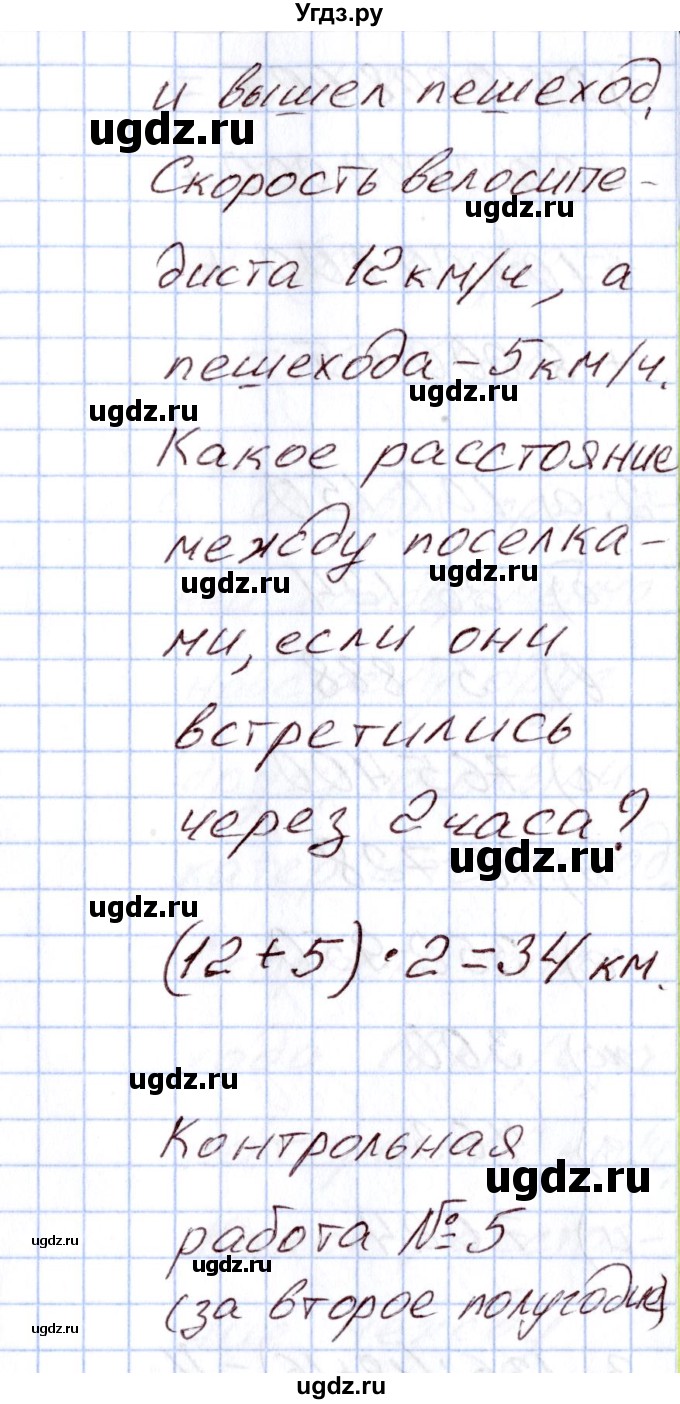 Угдз.ру
и вышел пешеход.
ugdz.ru
Скорость велосипе-
ugdz.ru
диста 12 км/ч, а
пешехода - 5 км/ч.
ugdz.ru
ugdz.ru
Какое расстояние
между поселка-
ugdz.ru
ugdz.ru
ми, если они
встретились
через 2 часа?
ugdz.ru
ugdz.ru
(12 + 5) · 2 = 34 км.
ugdz.ru
Контрольная
ugdz.ru
работа № 5
ugdz.ru
ugdz.ru
(за второе полугодие)
ugdz.ru
ugdz.ru